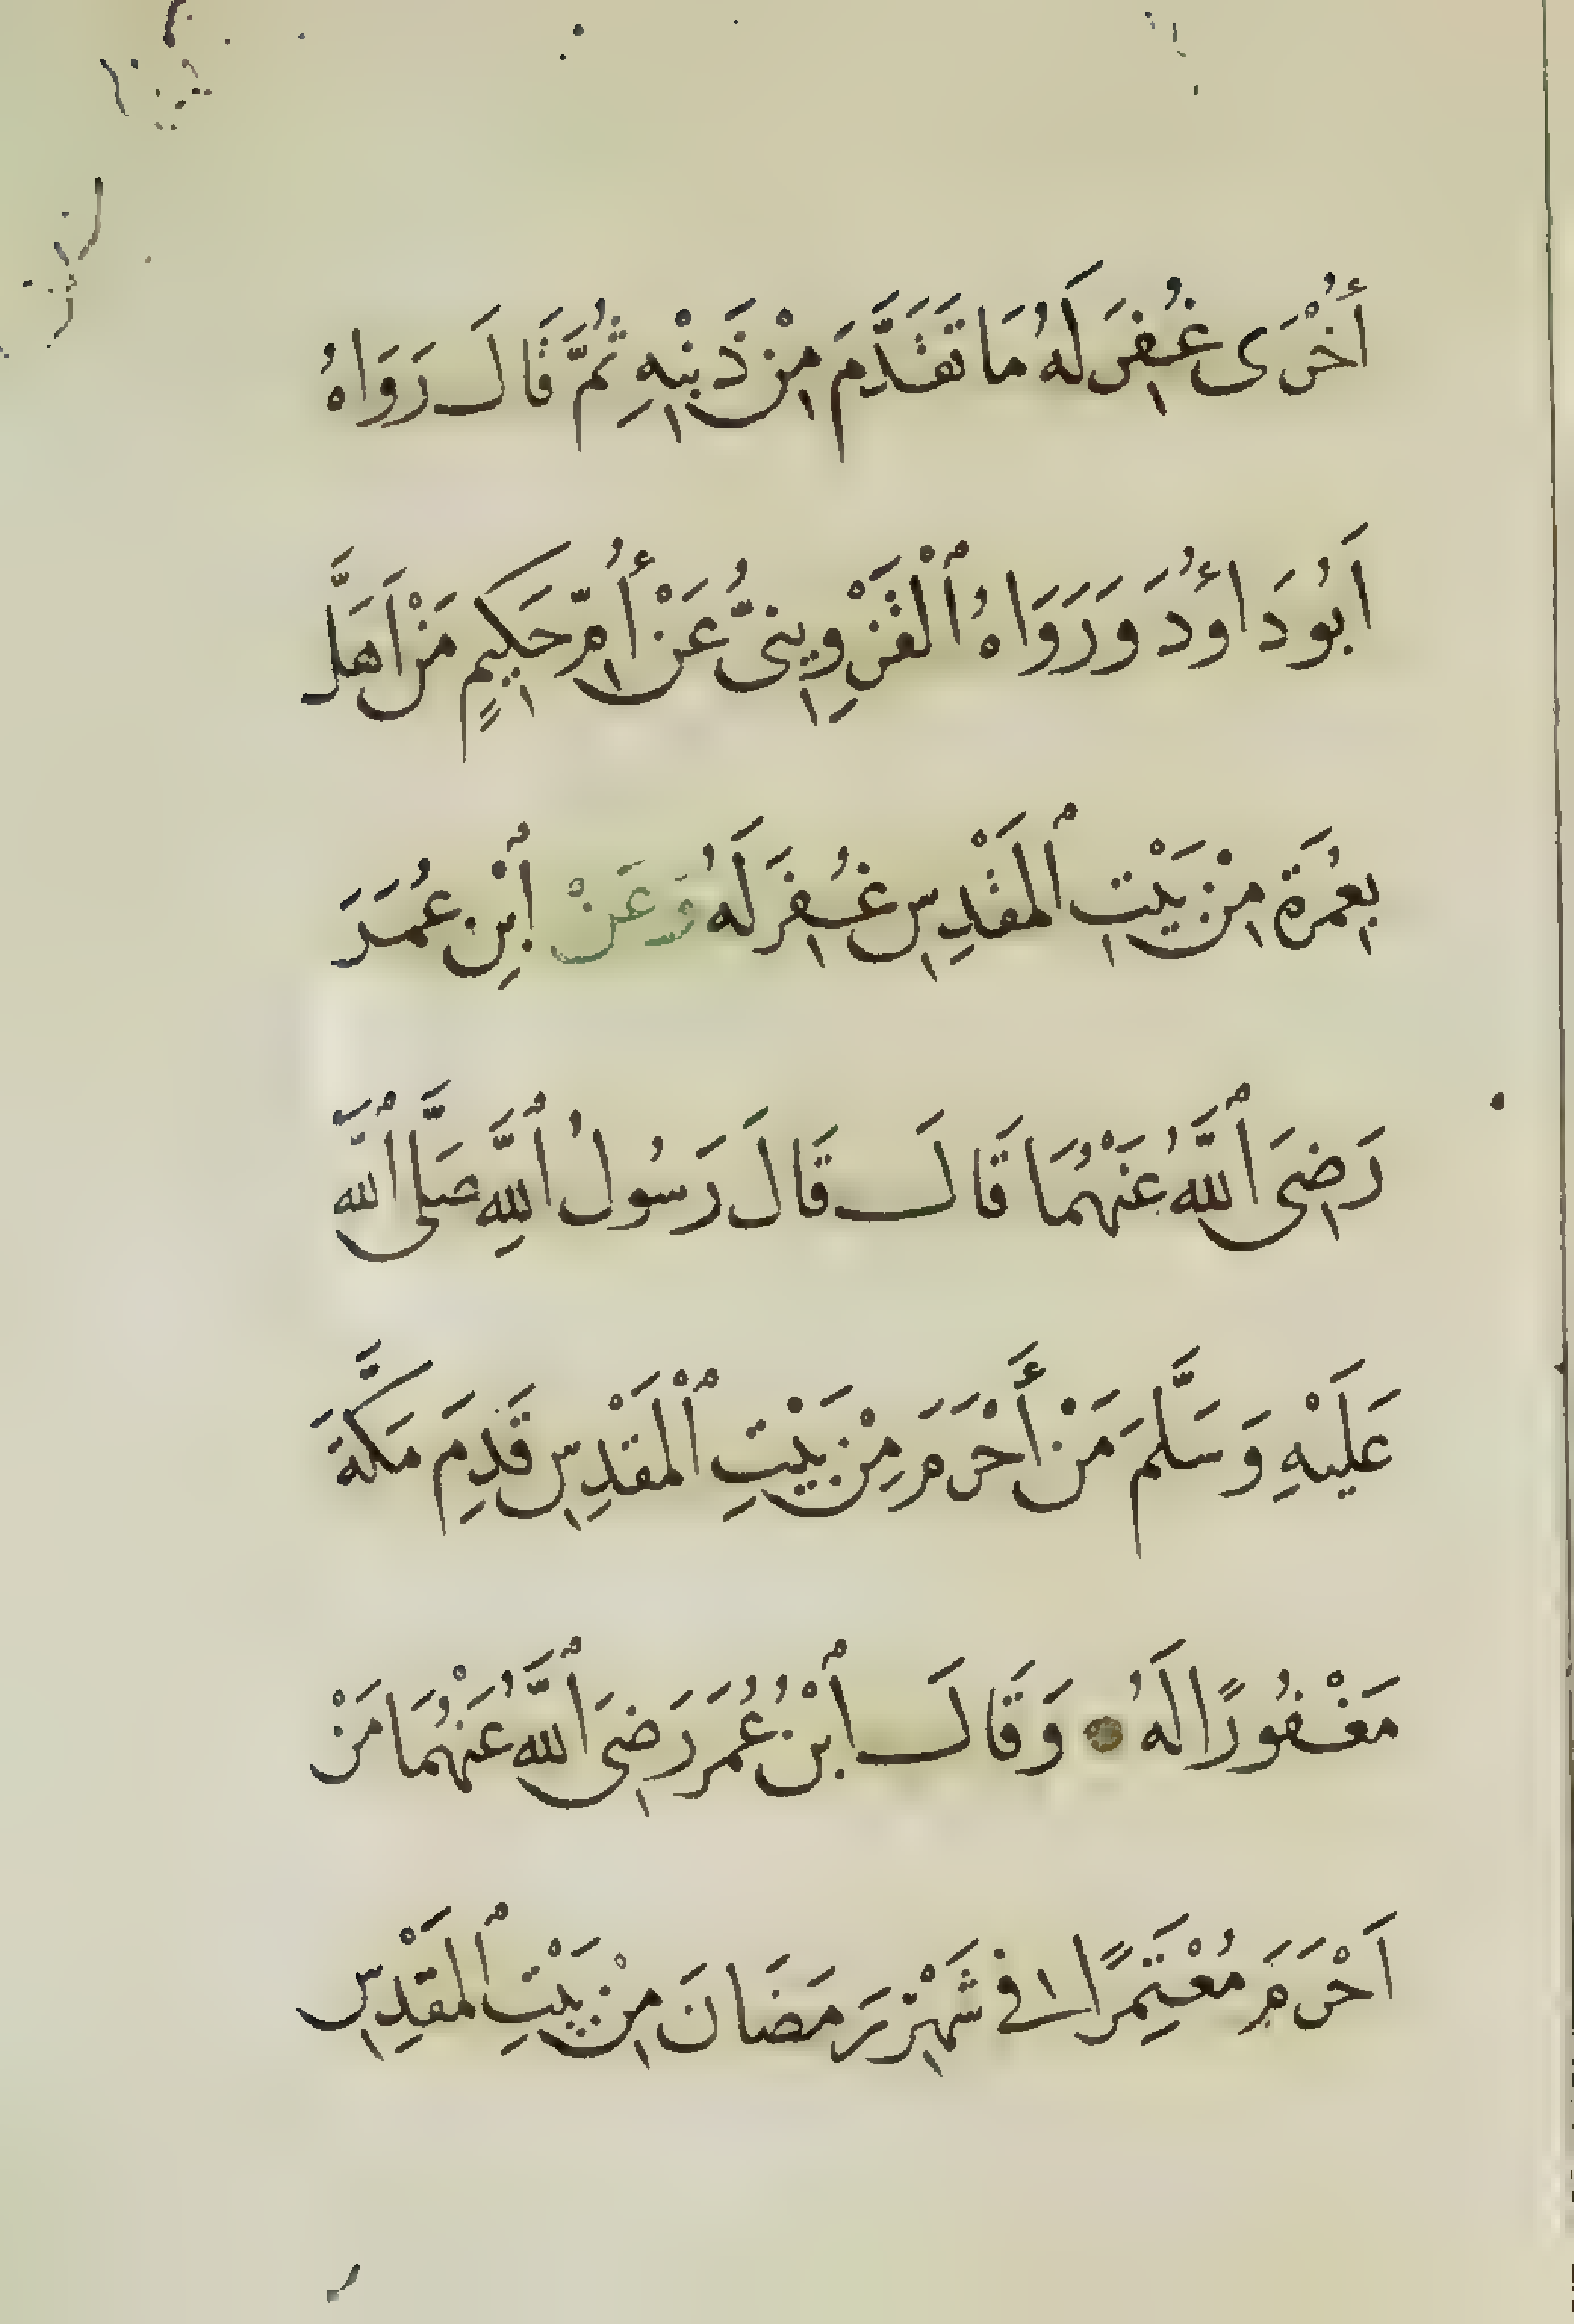 أُخْرَى غُفِرَ لَهُ مَا تَقَدَّمَ مِنْ ذَنْبِهِ ثُمَّ قَالَ رَوَاهُ
اَبُو دَاوُدَ وَرَوَاهُ ٱلْقَزْوِينِيُّ عَنْ أُمِّ حَكِيمٍ مَنْ اَهَلَّ
بِعُمْرَةٍ مِنْ بَيْتِ ٱلمَقْدِسِ غُفِرَ لَهُ وَعَنْ ٱبْنِ عُمَرَ
رَضِىَ ٱللَّهُ عَنْهُمَا قَالَ قَالَ رَسُولُ ٱللَّهِ صَلَّى ٱللَّهُ
عَلَيْهِ وَسَلَّمَ مَنْ أَحْرَمَ مِنْ بَيْتِ ٱلْمَقْدِسِ قَدِمَ مَكَّةَ
مَغْفُورًا لَهُ وَقَالَ ٱبْنُ عُمَرَ رَضِىَ ٱللَّهُ عَنْهُمَا مَنْ
اَحْرَمَ مُعْتَمِرًا فِى شَهْرِ رَمَضَانَ مِنْ بَيْتِ ٱلمَقْدِسِ